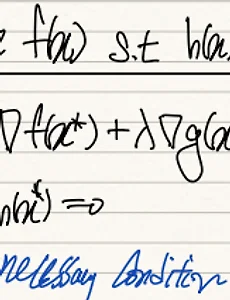 f(x) s.t h(x
∇f(x*) + λ∇g(x
h(x*) = 0
necessary condition